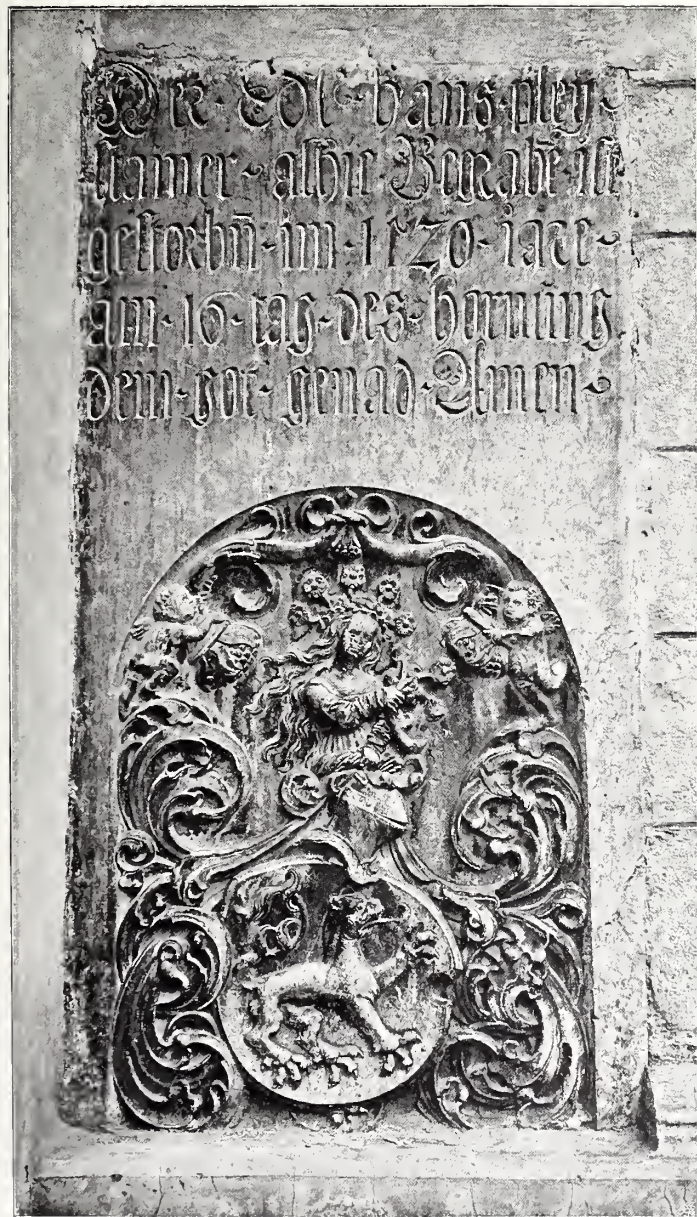 Der · Edl · hans · pley-
stainer · alhie · Begrabē · ist
gestorbn̄ · im · 1520 · iare ·
am · 16 · tag · des · hornūng
dem · got · genad · Amen ·